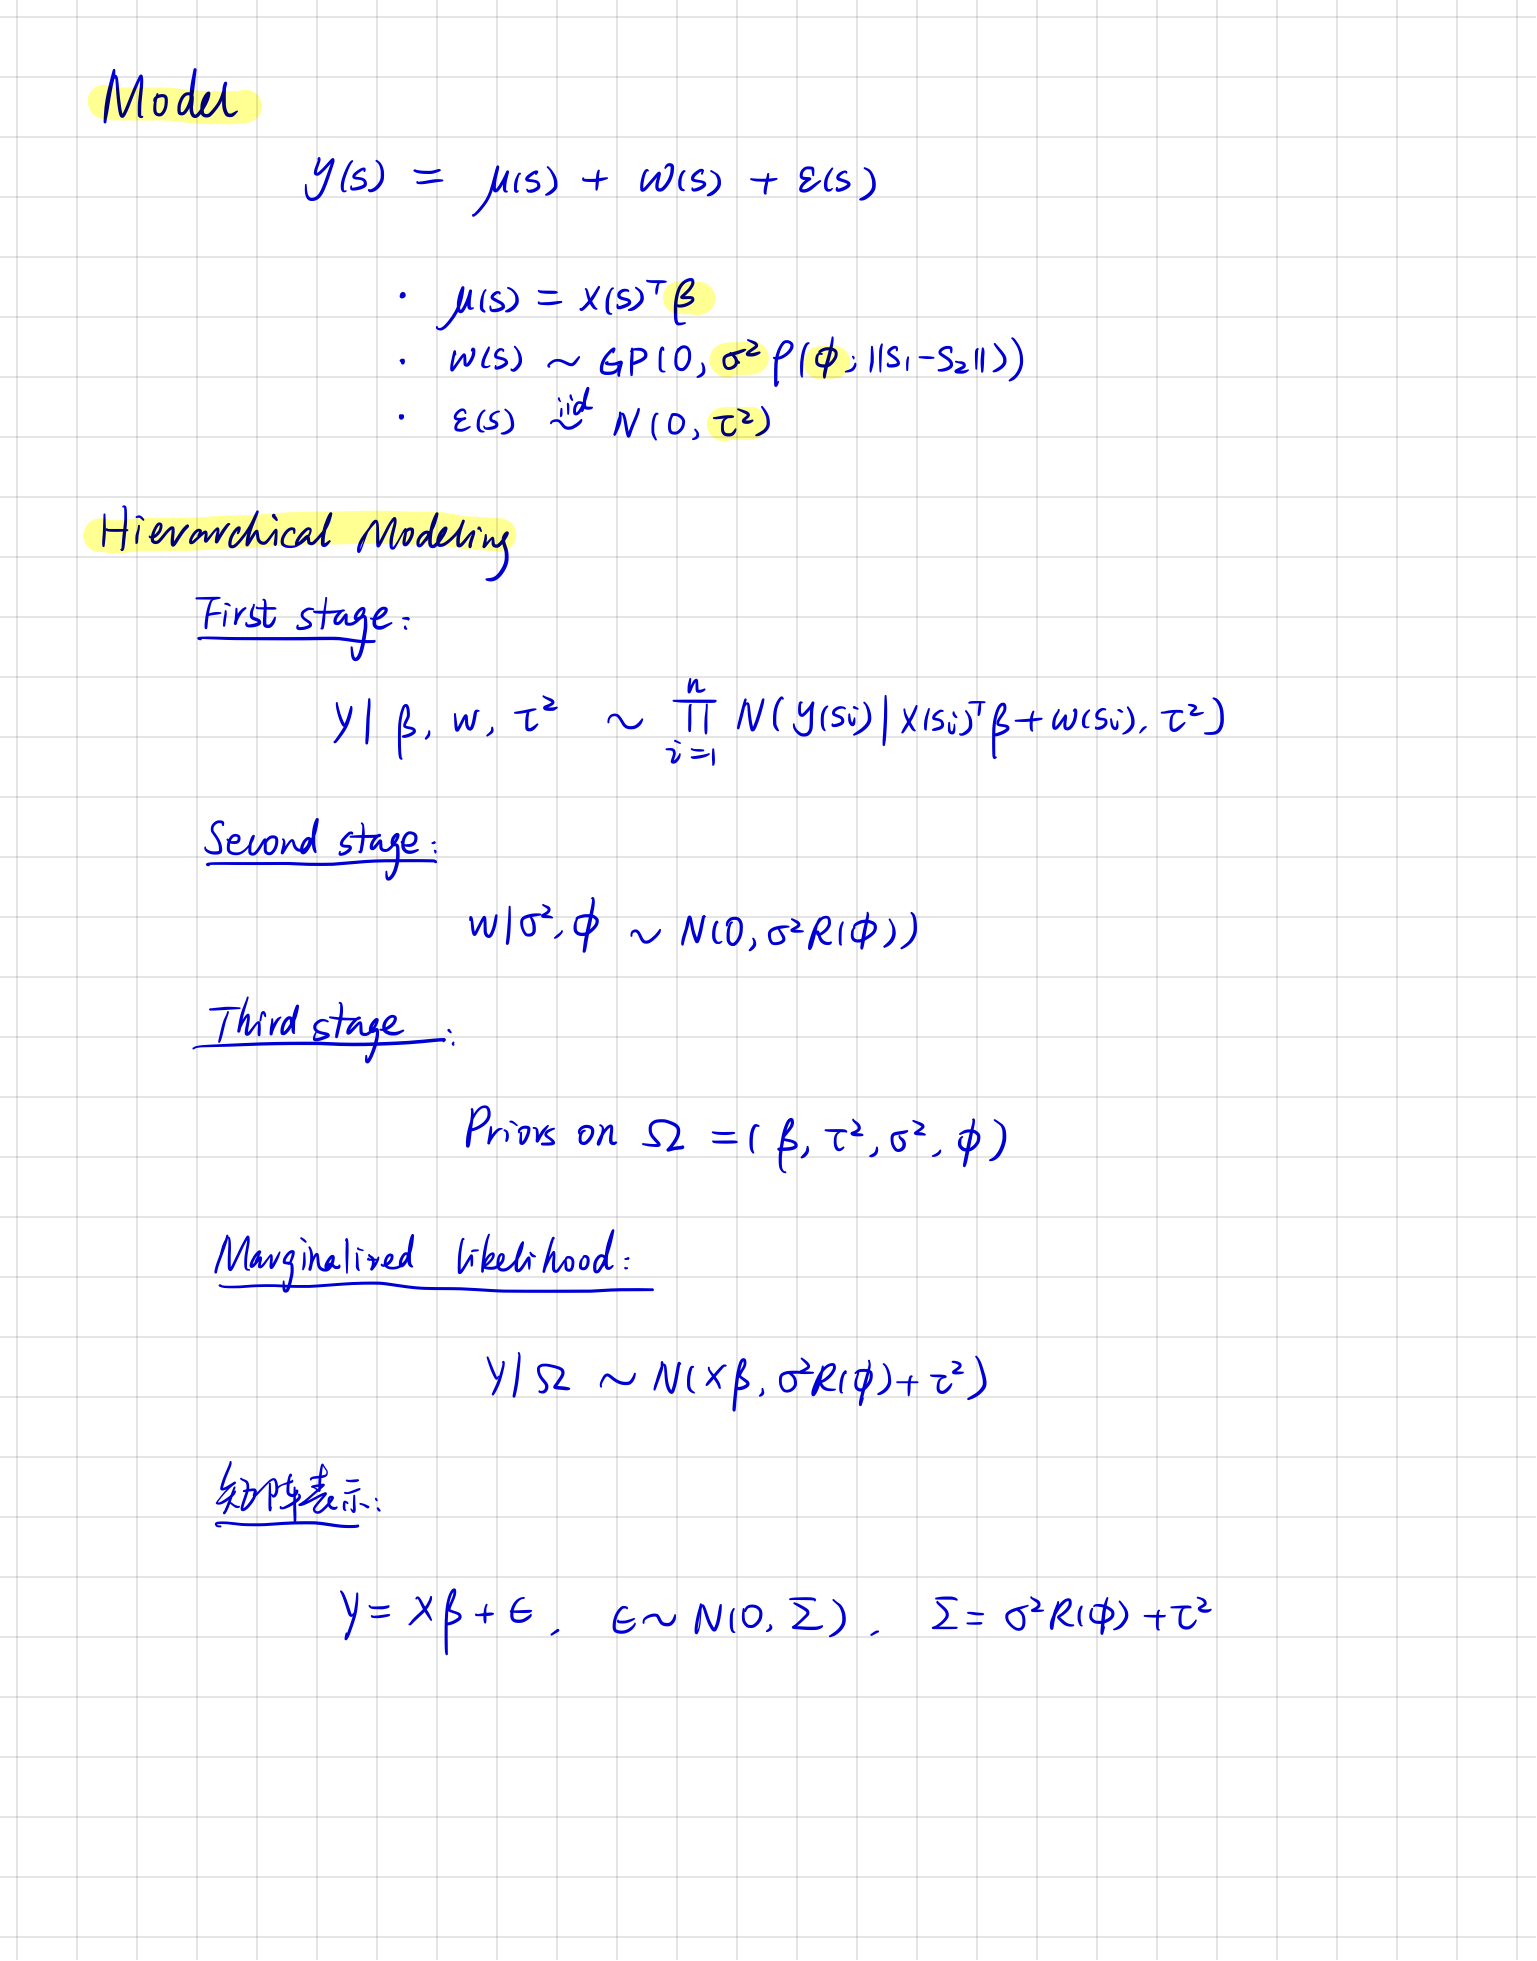 Model
y(s) = μ(s) + w(s) + ε(s)
· μ(s) = x(s)ᵀβ
· w(s) ~ GP(0, σ²ρ(ϕ; ||s₁-s₂||))
· ε(s) iid~ N(0, τ²)
Hierarchical Modeling
First stage:
Y| β, w, τ² ~ ∏ⁿᵢ₌₁ N(y(sᵢ)|x(sᵢ)ᵀβ+w(sᵢ), τ²)
Second stage:
w|σ², ϕ ~ N(0, σ²R(ϕ))
Third stage:
Priors on Ω = (β, τ², σ², ϕ)
Marginalized likelihood:
Y|Ω ~ N(Xβ, σ²R(ϕ)+τ²)
矩阵表示:
Y = Xβ + ϵ, ϵ~N(0, Σ), Σ = σ²R(ϕ)+τ²